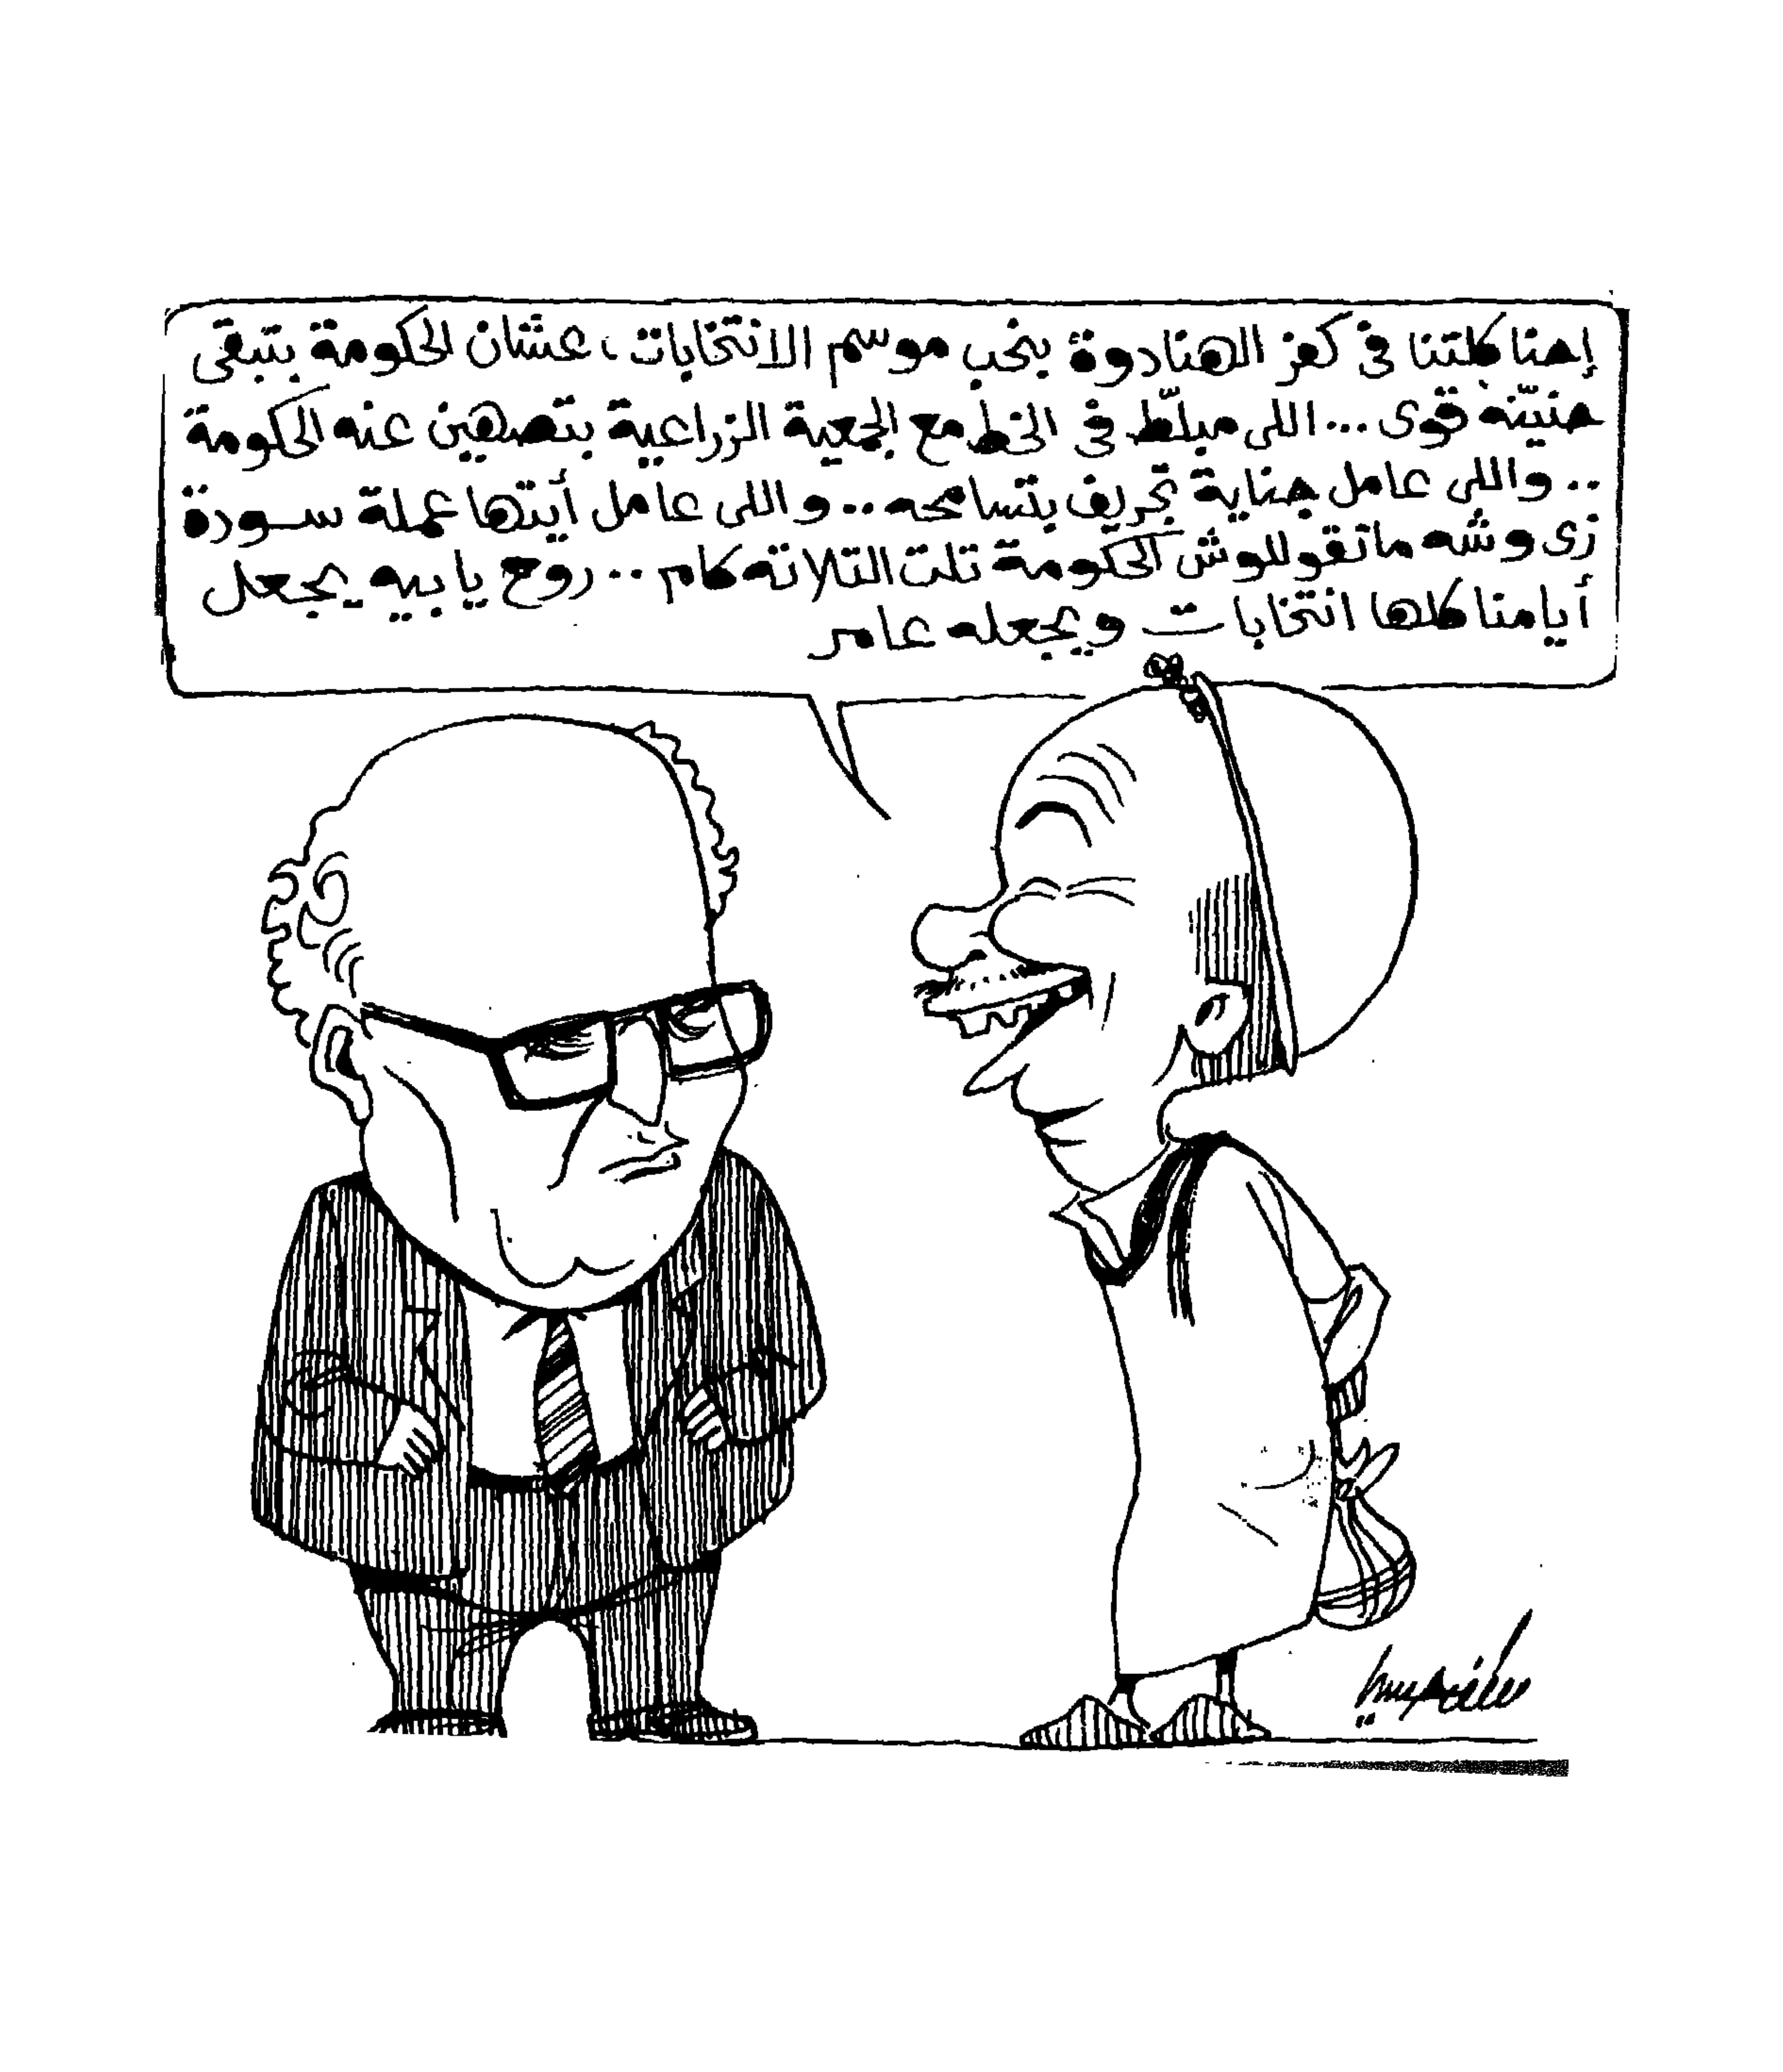 إحنا كلتنا فى كفر الهنادوة بنحب موسم الانتخابات، عشان الحكومة بتبقى
حنيّنه قوى... اللى مبلّط فى الخط مع الجمعية الزراعية بتصهين عنه الحكومة
.. واللى عامل جناية تجريف بتسامحه.. واللى عامل أيتها عملة سودة
زى وشه ماتقوللوش الحكومة تلت التلاته كام .. روح يابيه يجعل
أيامنا كلها انتخابات ويجعله عامر